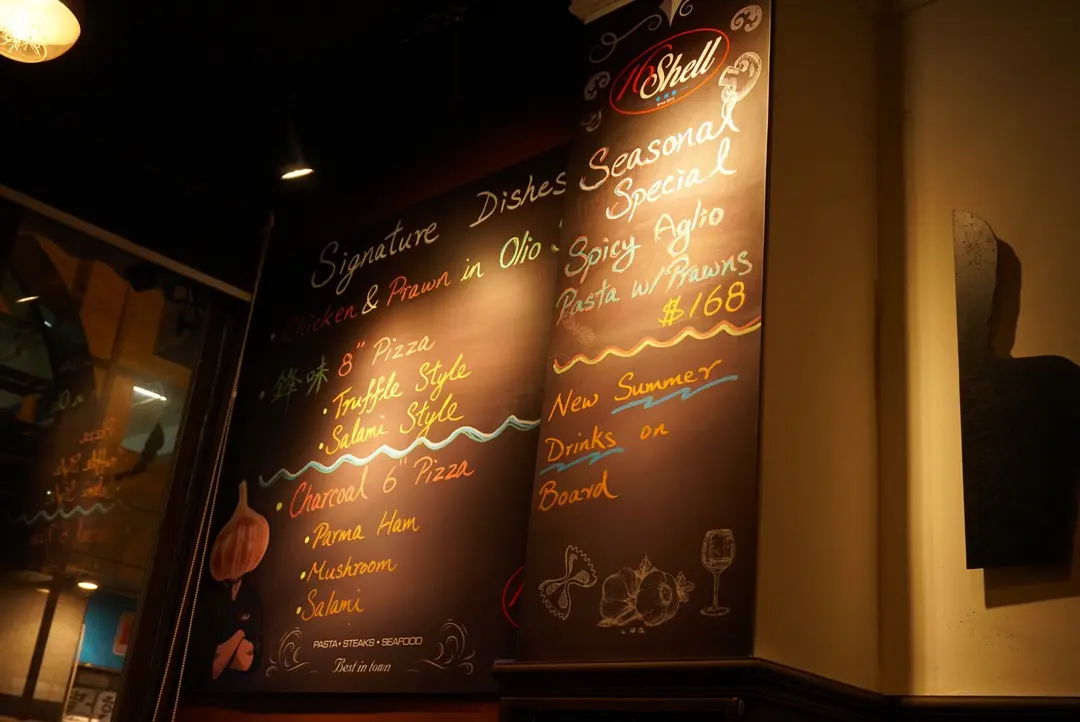 Signature Dishes
• Chicken & Prawn in Olio
• 鋒味 8" Pizza
• Truffle Style
• Salami Style
• Charcoal 6" Pizza
• Parma Ham
• Mushroom
• Salami
PASTA • STEAKS • SEAFOOD
Best in town
16 Shell
Seasonal
Special
Spicy Aglio
Pasta w/ Prawns
$168
New Summer
Drinks on
Board